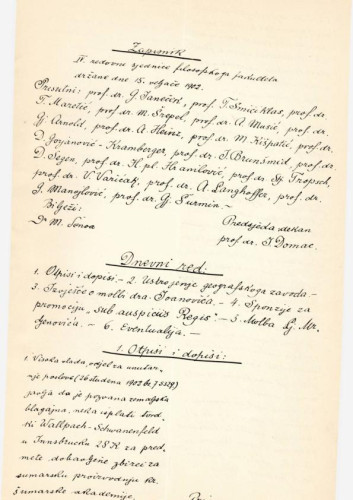 Zapisnik
IV. redovne sjednice filosofskoga fakulteta
držane dne 15. veljače 1902.
Presutni: prof. dr. G. Janeček, prof. T. Smičiklas, prof. dr.
T. Maretić, prof. dr. M. Šrepel, prof. dr. A. Musić, prof. dr.
Gj. Arnold, prof. dr. A. Heinz, prof. dr. M. Kišpatić, prof. dr.
D. Gorjanović-Kramberger, prof. dr. J. Brunšmid, prof. dr.
D. Segen, prof. dr. H. pl. Hranilović, prof. dr. Stj. Tropsch,
prof. dr. V. Varićak, prof. dr. A. Langhoffer, prof. dr.
G. Manojlović, prof. dr. Gj. Šurmin.
Predsjeda dekan
Bilježi:
prof. dr. J. Domac.
Dr M. Šenoa
Dnevni red:
1. Otpisi i dopisi. - 2. Ustrojenje geografskoga zavoda -
3. Izvješće o molbi dra. Joanovića. - 4. Sponzije za
promociju „sub auspiciis Regis". - 5. Molba Lj.
- 6. Eventualija. -
1. Otpisi i dopisi:
1. Visoka vlada, odjel za unutar-
nje poslove (26 studena 1902 br.
javlja da je pozvana zemaljska
blagajna, neka isplati tvrd-
ki Wallpach-Schwanenfeld
u Innsbrucku 28 K za pred-
mete dobavljene zbirci za
šumarsku proizvodnju kr.
šumarske akademije.